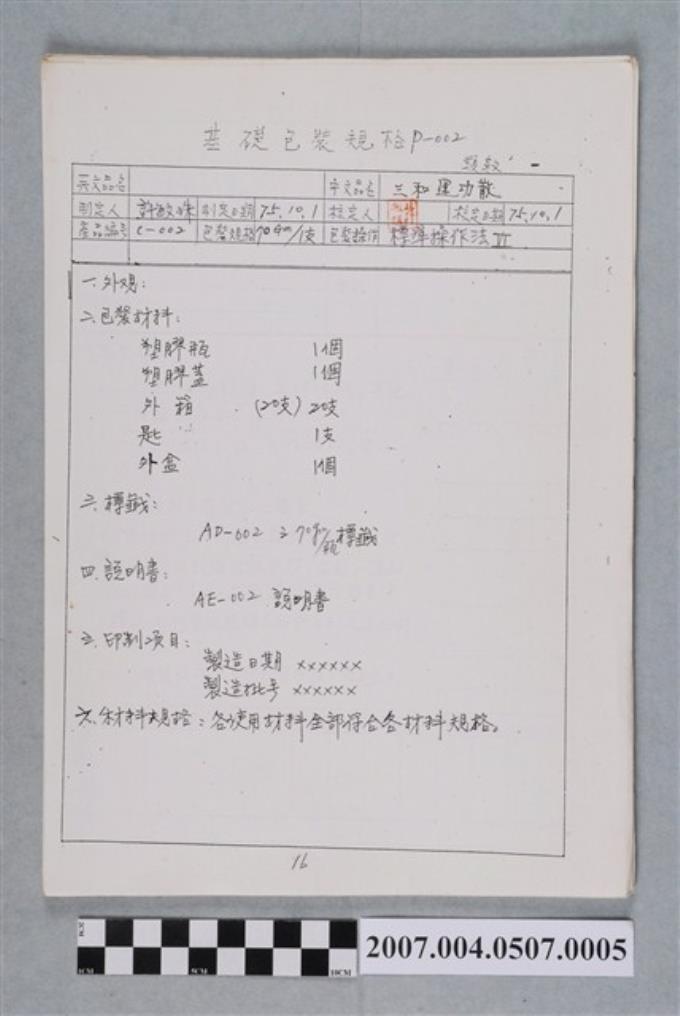 基礎包裝規格P-002
頁數 -
英文品名 中文品名 三和運功散
制定人 制定日期 75.10.1 核定人 核定日期 75.10.1
產品編号 C-002 包裝規格 70gm/1支 包裝操作 標準操作法VI
一.外观:
二.包裝材料:
塑膠瓶 1個
塑膠蓋 1個
外箱 (20支) 20支
匙 1支
外盒 1個
三.標籤:
AD-002 之70gm/瓶標籤
四.說明書:
AE-002 說明書
五.印制項目:
製造日期 ××××××
製造批号 ××××××
六.材料規格:各使用材料全部符合各材料規格。
16
1CM 5CM 10CM
2007.004.0507.0005